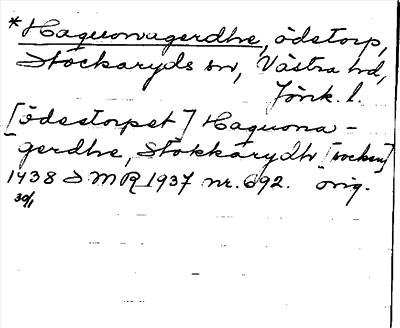 *Haquonagerdhe, ödetorp,
Stockaryds sn, Västra hd,
Jönk. l.
[ödestorpet] Haquona-
gerdhe, Stokkarydh [socken]
1438 SMR 1937 nr. 692. orig.
30/1